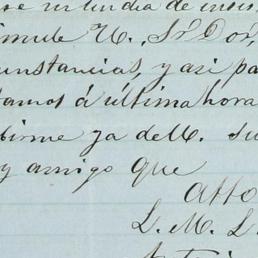 un dia de
U., Sr Dor,
unstancias, y asi pa
tamos á última hora
birme ya de U. Su
y amigo que
Atto
L. M. L.